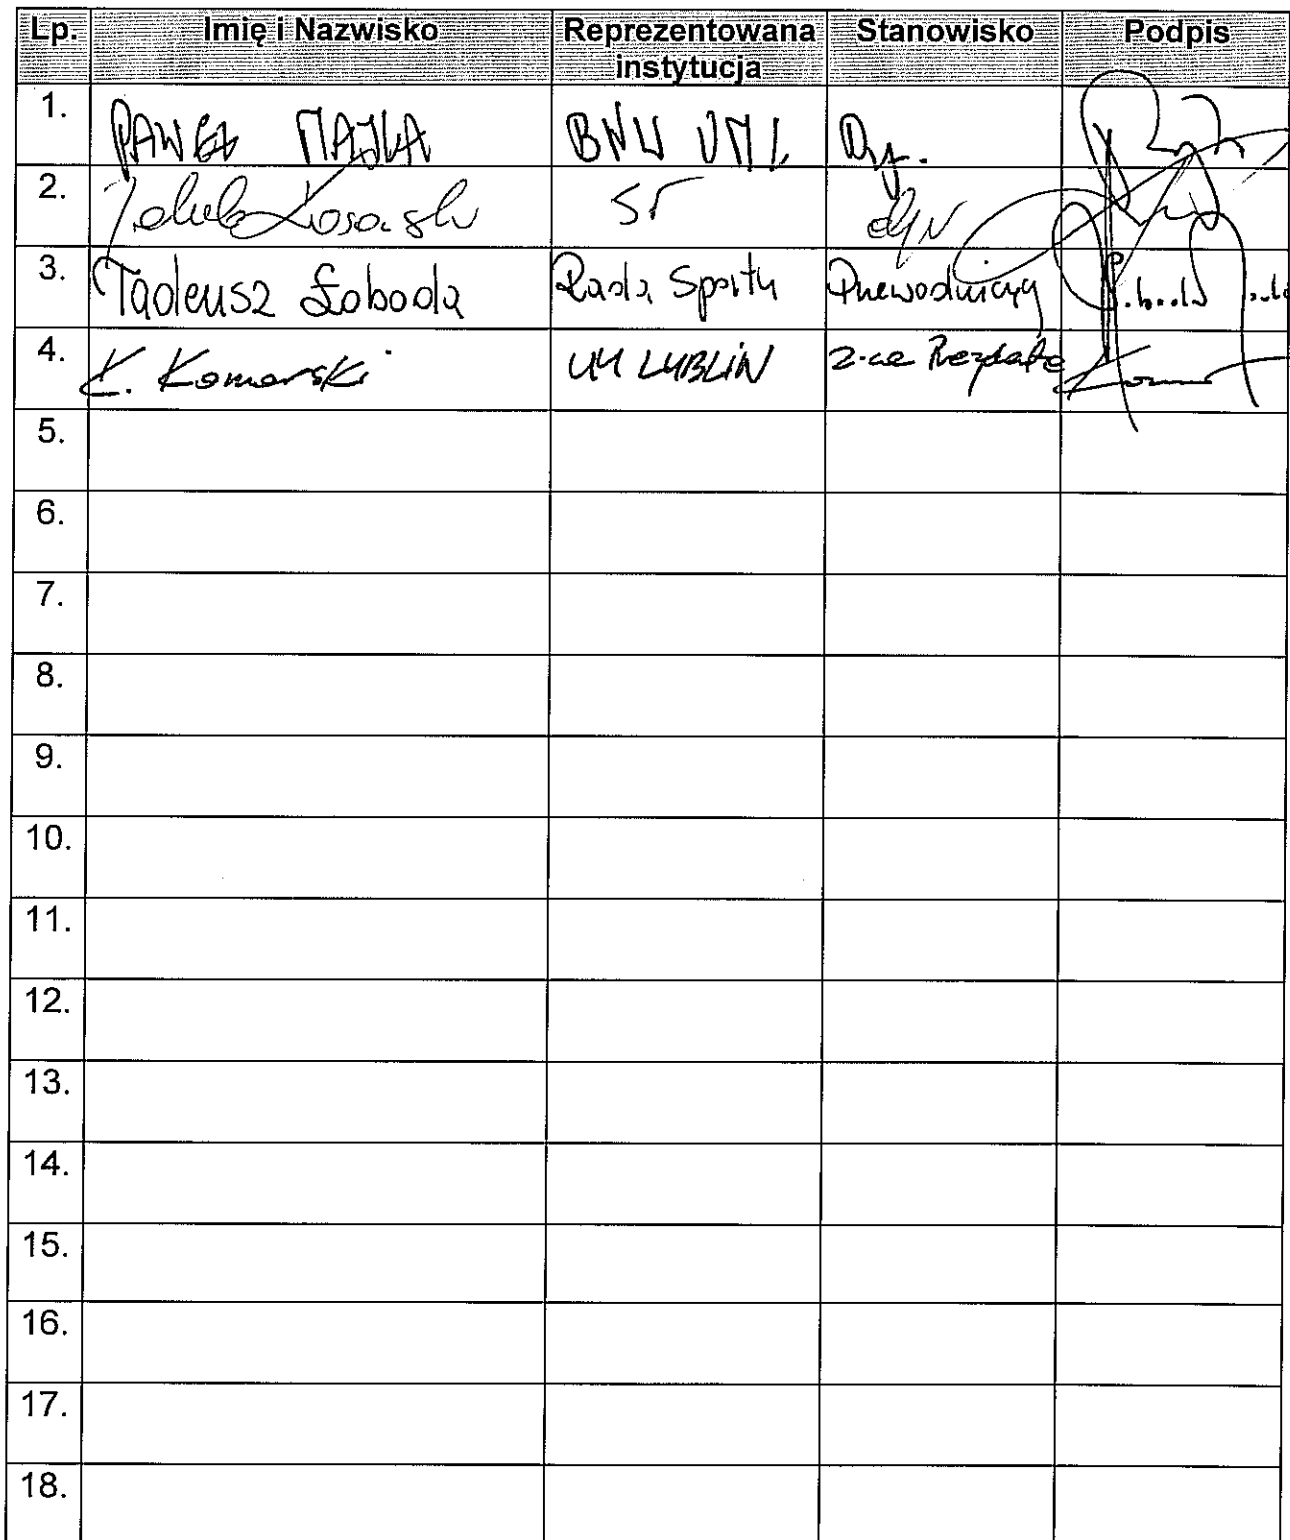 Lp. Imię i Nazwisko Reprezentowana instytucja Stanowisko Podpis
1. PAWEŁ MAJKA BNW UML Dyr.
2. Jakub Kosowski ST dyr
3. Tadeusz Łoboda Rada Sportu Przewodniczący
4. K. Komorski UM LUBLIN Z-ca Prezydenta
5.
6.
7.
8.
9.
10.
11.
12.
13.
14.
15.
16.
17.
18.